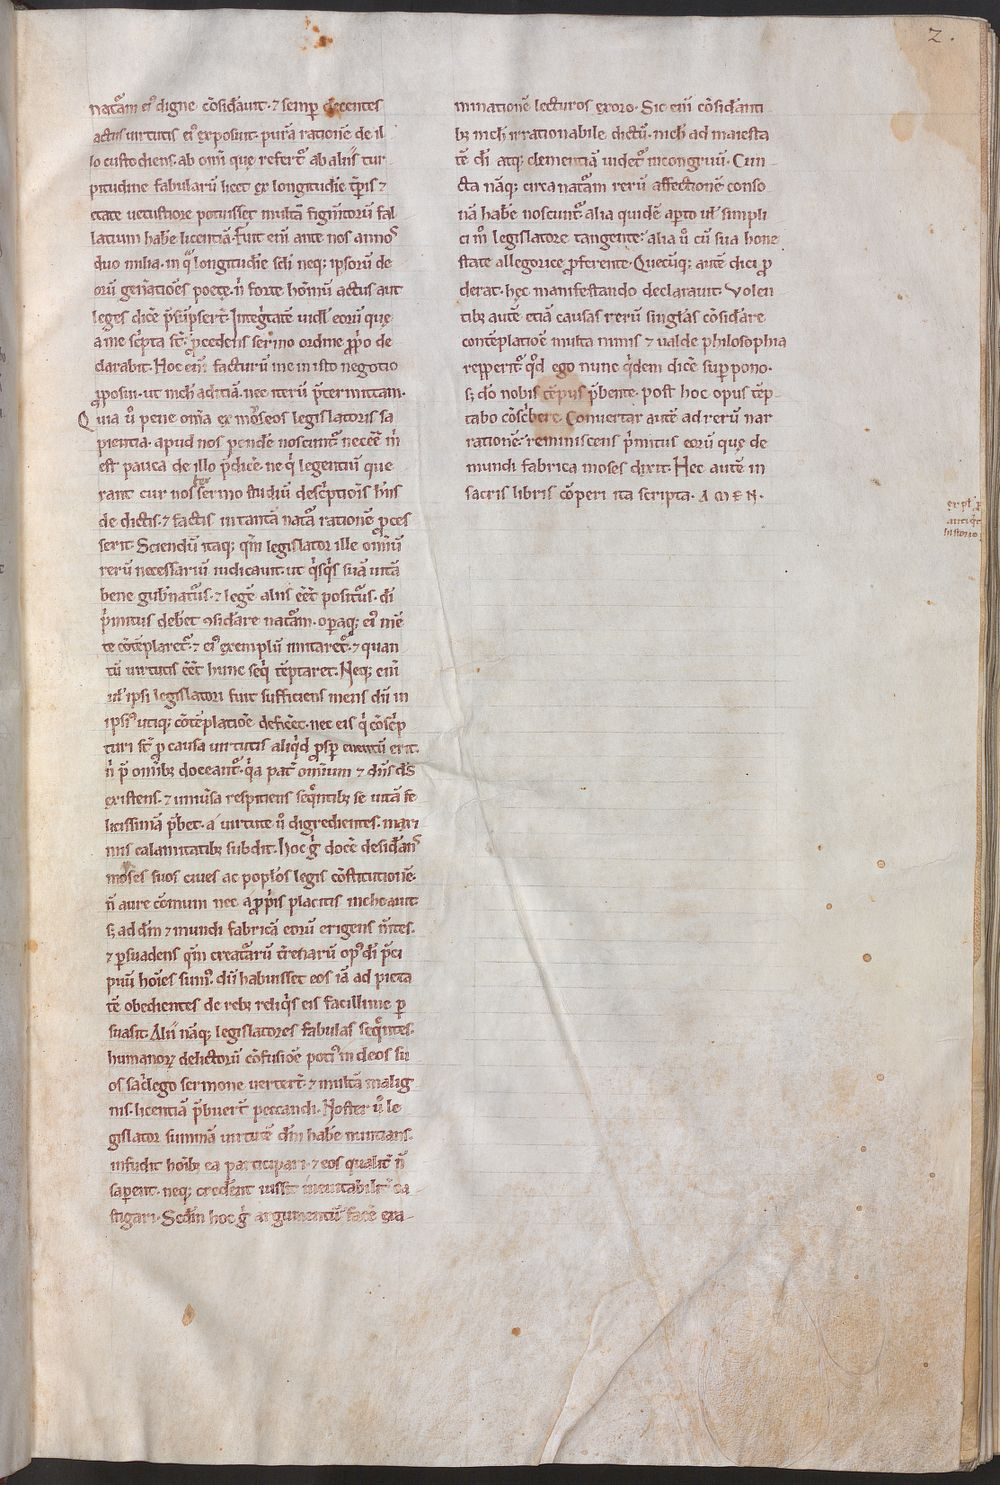 2.
natãm ei᾽ digne cõsid̃auit · ⁊ semp̃ decentes
actus uirtutis ei᾽ exposuit · purã rationẽ de il
lo custodiens · ab om̃i quę refert᷑ ab aliis tur
pitudine fabularũ licet ex longitudĩe tẽp̃is ⁊
etate uetustiore potuisset multã figm̃torũ fal
latium hab̃e licentiã · Fuit eni᷑ ante nos annoꝰ
duo milia · in q̃ longitudĩe sc̃li neq; ipsorũ de
orũ gen̾atiões poetę · ñ forte hom̃ũ actus aut
leges dicẽ p̃sũpsert̃ · Integ̃tatẽ uid̾l eorũ quę
a me sc̃pta st̃ · p̃cedens sermo ordine pp̃o de
clarabit · Hoc eni᷑ facturũ me in isto negotio
ꝓposui · ut nich̾ aditiã · nec iterũ p̃termittam ·
Quia ů pene om̃ia ex moseos legislatoris sa
pientia · apud nos pendẽ noscunt᷑ neceẽ m̃
est pauca de illo p̃dicẽ · ne q̃ legentiũ que
rant cur noster sermo studiũ desc̃ptiõis h̾ns
de dictis · ⁊ factis in tantã natã rationẽ ꝓces
serit · Sciendũ itaq; qm̃ legislator ille om̃iũ
rerũ necessariũ iudicauit · ut q̃sq̃s suã uitã
bene gub̾natꝰus · ⁊ legẽ aliis eẽt positꝰus · di᷑
p̃mitus deb̾et ꝯsid̾are natãm · op̾aq; ei᾽ mẽ
te cõtẽplaret᷑ · ⁊ ei᾽ exemplũ imitaret᷑ · ⁊ quan
tũ uirtutis eẽt hunc seq̃ tẽptaret · Neq; eni᷑
ul᾽ ipsi legislatori fuit sufficiens mens dũ in
ipsiꝰ utiq; cõtẽplatiõe deficeet · nec eis q̃ cõsc̃p
turi st̃ ꝓ causa uirtutis aliq̃d ꝓsp̾ euentũ erit ·
ñ p̃ omĩbꝫ doceant᷑ · q̃a pat̾ omnium ⁊ dñs ds̃
existens · ⁊ uniũsa respitiens seq̃ntibꝫ se uitã fe
licissimã p̃bet · a uirtute ů digredientes · maxi
mis calamitatibꝫ subdit · Hoc g̃ docẽ desid̾ans᾽
moses suos ciues ac poplos legis cõstitutionẽ ·
ñ a iure cõmum nec a ꝓp̃is placitis inchoauit
s; ad dm̃ ⁊ mundi fabricã eorũ erigens m̃tes ·
⁊ p̾suadens qm̃ creatãrũ t̾renarũ op᾽ di᷑ p̃ci
puũ hoĩes sumꝰ · dũ habuisset eos iã ad pieta
tẽ obedientes de rebꝫ reliq̃s eis facillime p̾
suasit · Alii nãq; legislatores fabulas seq̃ntes ·
humanoꝝ delictorũ cõfusiõe potiꝰ in deos su
os sac̾lego sermone uertert̃ · ⁊ multã malig
nis · licentiã p̃buert̃ peccandi · Noster ů le
gislator summã uirtutẽ dm̃ hab̃e nuntians ·
infudit hoĩbꝫ ea participari · ⁊ eos qualit̾ ñ
sap̾ent · neq; cred̾ent iussit ineuitabilit̾ ca
stigari · Sed in hoc g̃ argumentũ facẽ exa-
minationẽ lecturos exoro · Sic eni᷑ cõsid̾anti
bꝫ nich̾ irrationabile dictũ · nich̾ ad maiesta
tẽ di᷑ atq; clementiã uidet᷑ incongruũ · Cun
cta nãq; circa natãm rerũ affectionẽ conso
nã hab̃e noscunt᷑ · alia quidẽ ap̾to ul᾽ simpli
ci m̃ legislatore tangente · alia ů cũ sua hone
state allegorice ꝓferente · Quecũq; autẽ dici ꝓ
derat · hęc manifestando declarauit · Volen
tibꝫ autẽ etiã causas rerũ singl̾as cõsid̾are
contẽplatiõe multa nimis ⁊ ualde philosophia
repperit᷑ · q̃d ego nunc q̃dem dicẽ sup̾pono ·
s; dõ nobis tẽpus p̃bente · post hoc opus tẽp
tabo cõsc̃bere · Conuertar autẽ ad rerũ nar
rationẽ · reminiscens p̃mitus eorũ quę de
mundi fabrica moses dixit · Hec autẽ in
sacris libris cõperi ita scripta · A M E N ·
expl̾ p̃
antiq̃t
historio